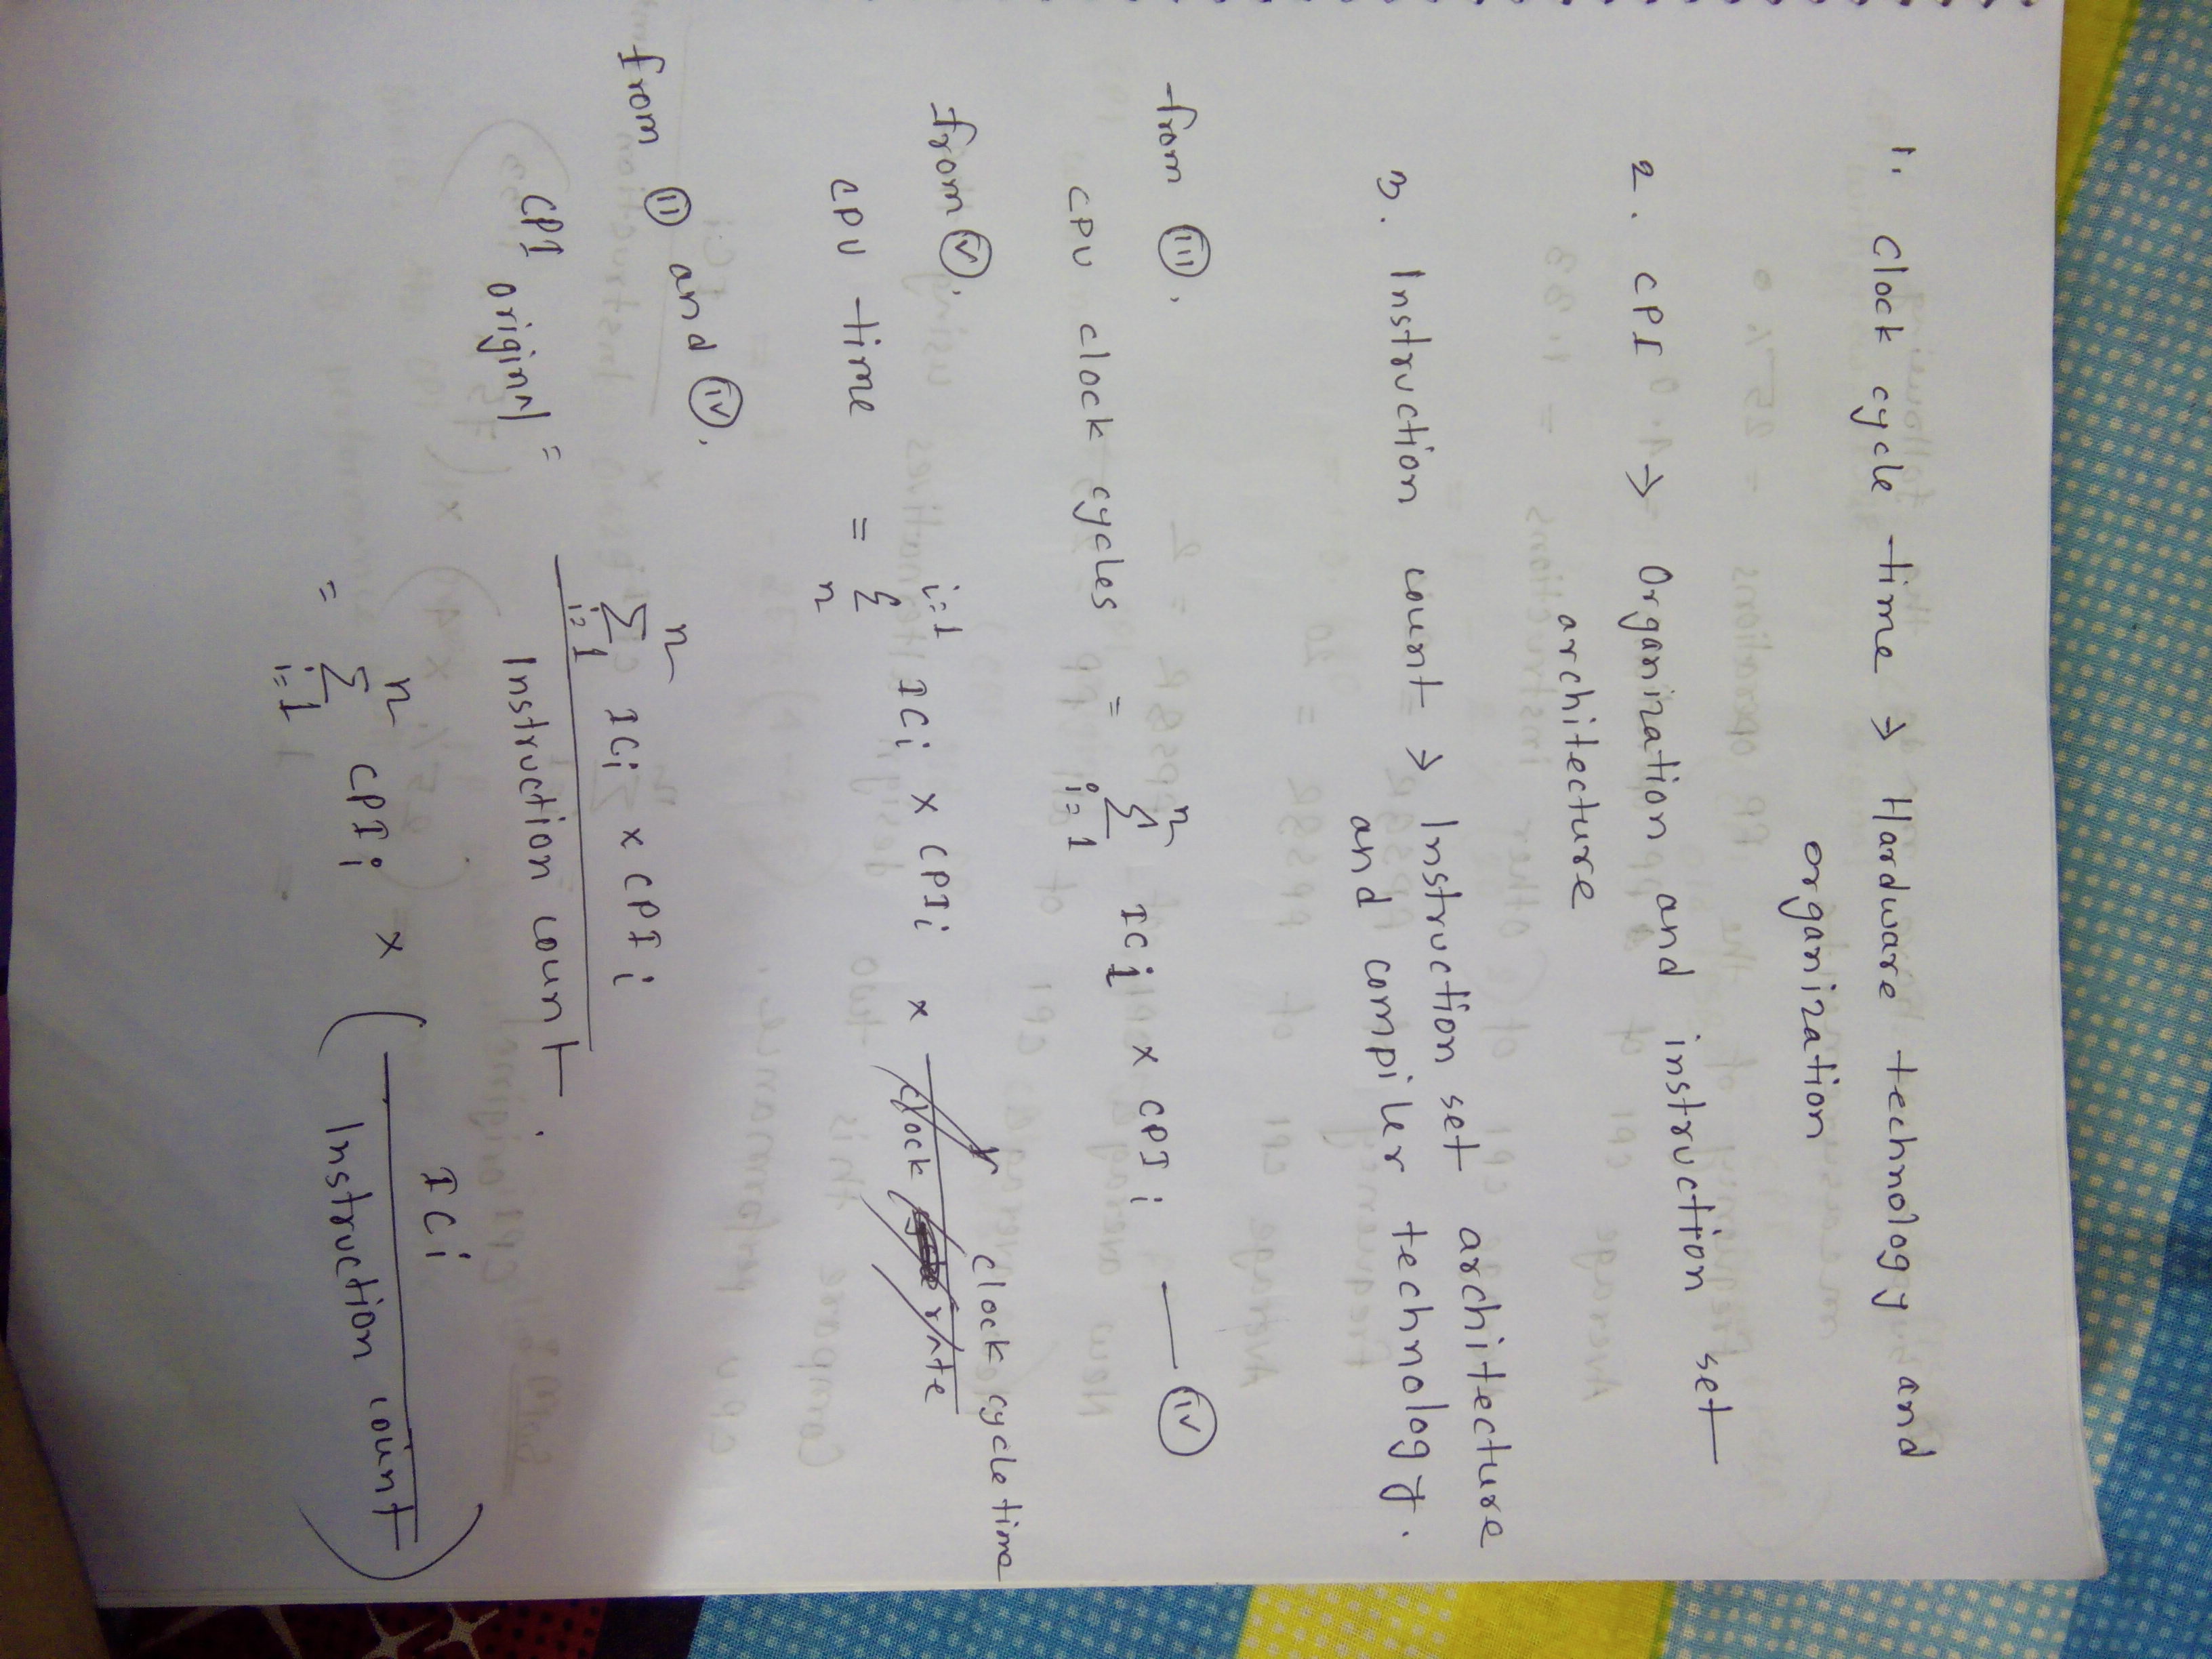 1. Clock cycle time → Hardware technology and
organization
2. CPI → Organization and instruction set
architecture
3. Instruction count → Instruction set architecture
and compiler technology.
from (III),
n
CPU clock cycles = Σ ICi × CPIi — (IV)
i=1
from (V),
clock cycle time
i=1
CPU time = Σ ICi × CPIi ×
clock rate
n
from (II) and (IV),
n
Σ ICi × CPIi
i=1
CPI original =
Instruction count.
n
= Σ CPIi × (ICi
Instruction count)
i=1